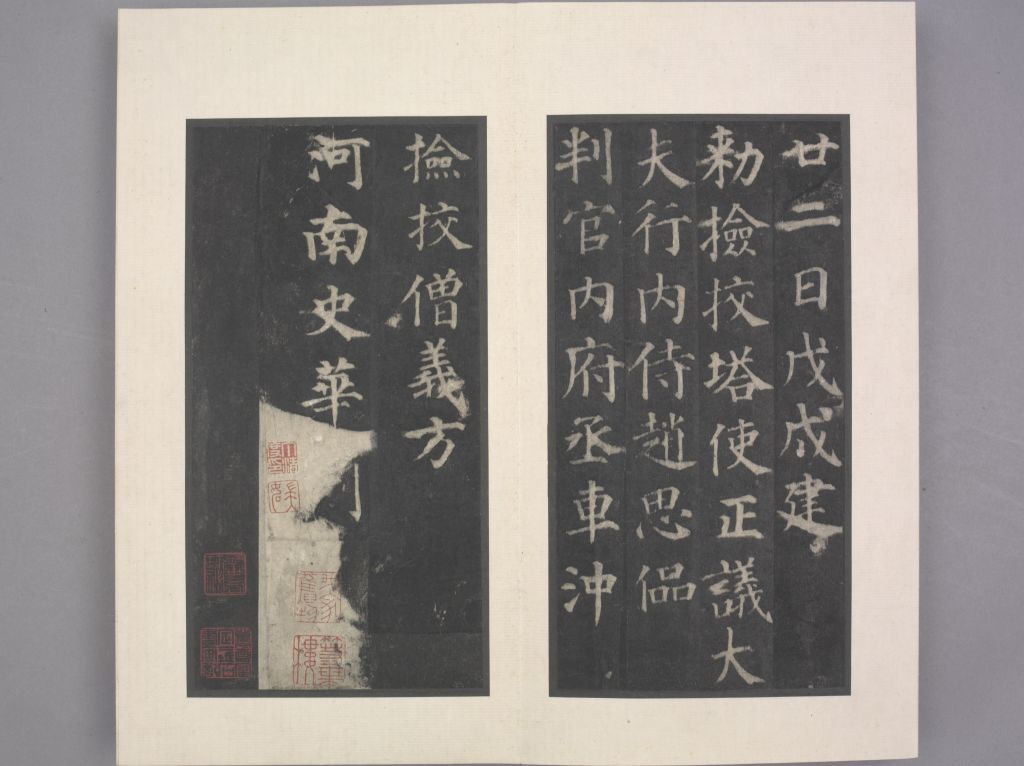 廿二日戊戌建
勑撿挍塔使正議大
夫行内侍趙思偘
判官内府丞車沖
撿挍僧義方
河南史華